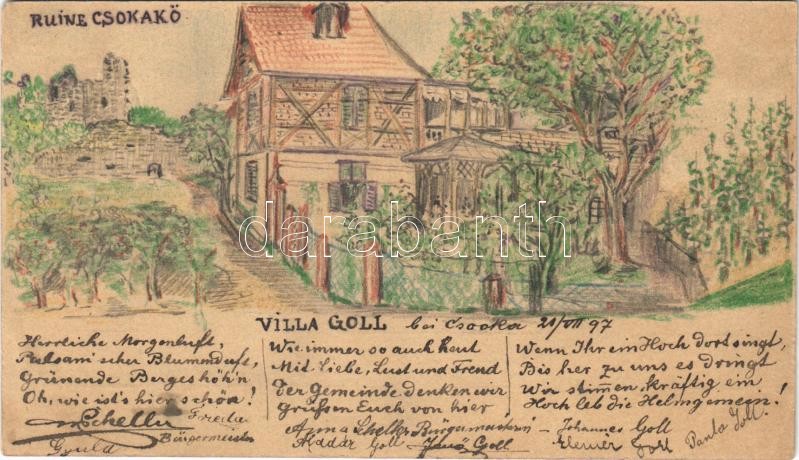 RUINE CSOKAKÖ
darabanth
VILLA GOLL bei Csooka 21/VII 97
Herrliche Morgenluft,
Balsam'scher Blumenduft,
Grünende Bergeshöh'n
Oh, wie ist's hier schön!
Scheller
Bürgermeister
Wie immer so auch heut
Mit Liebe, Lust und Freud
Der Gemeinde denken wir
Grüssen Euch von hier
Anna Scheller Bürgermeisterin
Aladár Goll Jenö Goll
Wenn Ihr ein Hoch dort singt,
Bis her zu uns es dringt
Wir stimmen kräftig ein
Hoch leb die Helmgemein!
Johannes Goll
Goll Paula Goll.